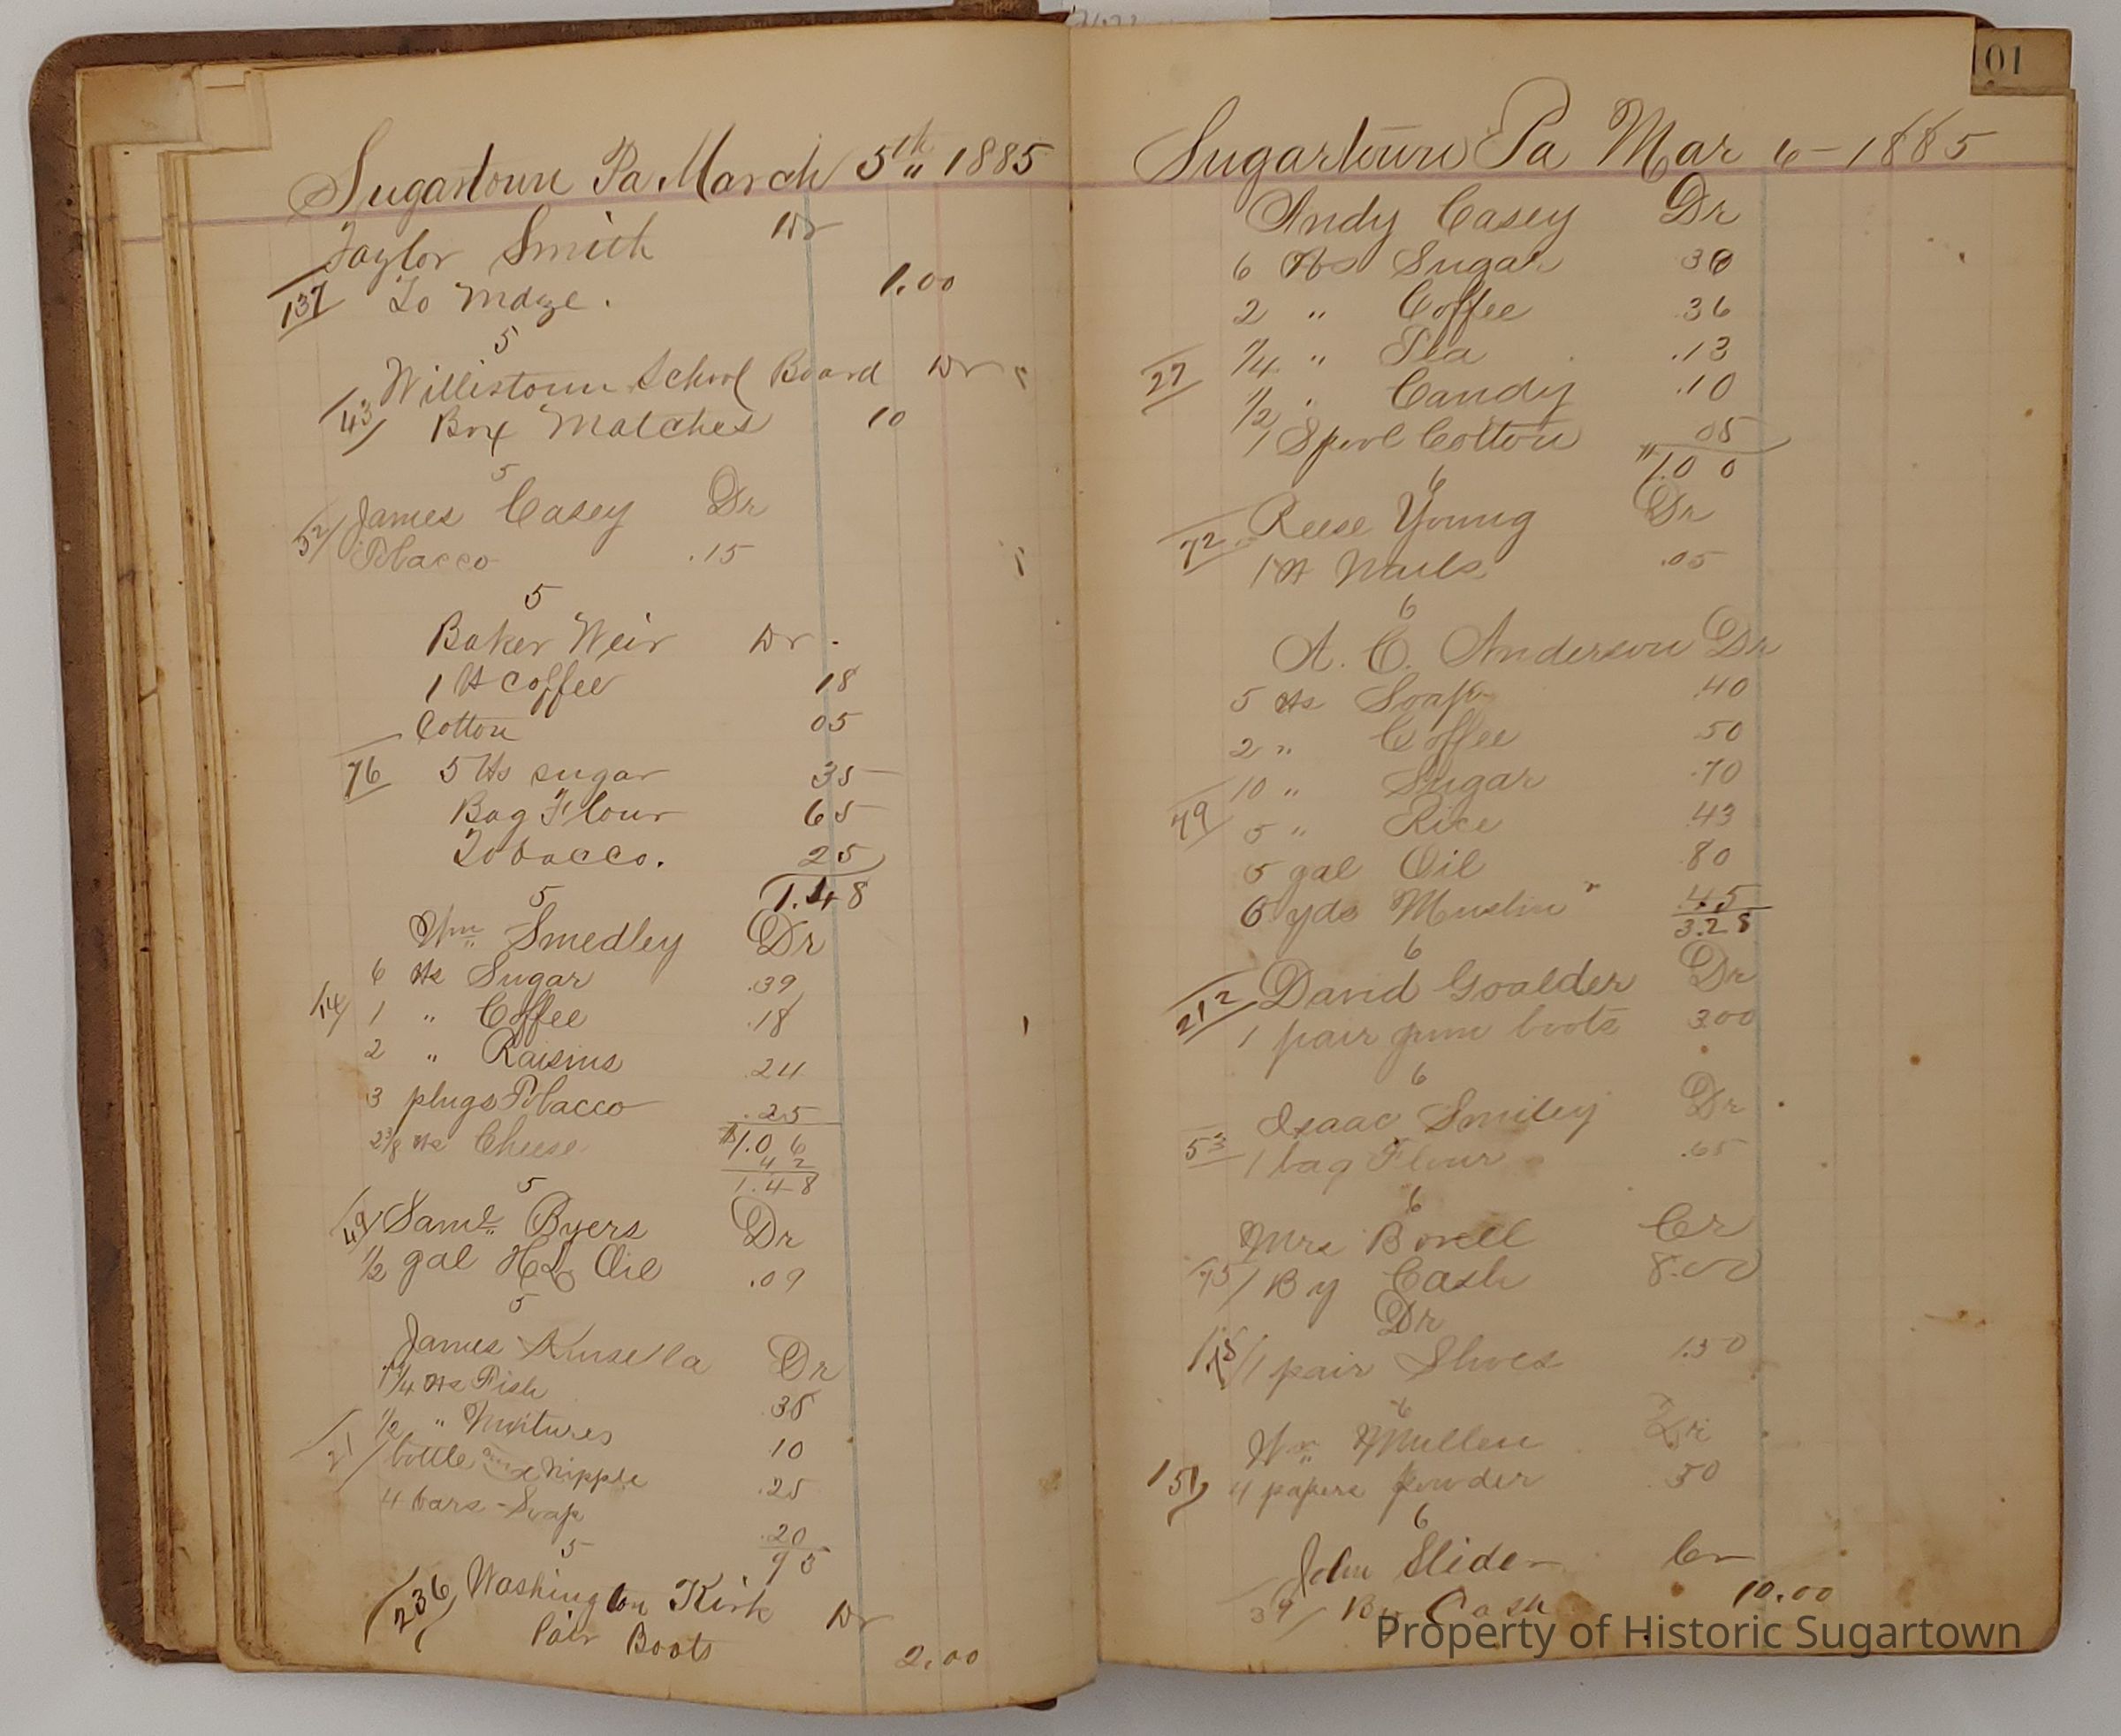 Sugartown Pa March 5th 1885
Taylor Smith Dr
137 To Mdze. 1.00
5
Willistown School Board Dr
43 Box Matches 10
5
James Casey Dr
32 Tobacco .15
5
Baker Weir Dr.
1 lb Coffee 18
Cotton 05
76 5 lbs sugar 35
Bag Flour 65
Tobacco. 25
1.48
5
Wm Smedley Dr
6 lbs Sugar .39
14 1 " Coffee .18
2 " Raisins .24
3 plugs Tobacco .25
$1.06
2 3/8 lbs Cheese 42
1.48
5
49 Saml. Byers Dr
1/2 gal HL Oil .09
5
James Kinsella Dr
lbs Fish
1/2 " Mixtures 10
21 bottle nipple .25
4 bars Soap .20
95
5
236 Washington Kirk Dr
Pair Boots 2.00
101
Sugartown Pa Mar 6 - 1885
Andy Casey Dr
6 lbs Sugar 36
2 " Coffee .36
1/4 " Tea .13
27
1/2 " Candy .10
1 Spool Cotton 05
$1.00
6
72 Reese Young Dr
1 lb Nails .05
6
A. C. Anderson Dr
5 lbs Soap .40
2 " Coffee .50
10 " Sugar .70
49 5 " Rice 43
5 gal Oil 80
6 yds Muslin " .45
3.28
6
212 David Goalder Dr
1 pair gum boots 3.00
6
Isaac Smiley Dr
53 1 bag Flour .65
6
Mrs Borell Cr
75 By Cash 8.00
Dr
1 pair Shoes 1.50
6
Wm Mullen Dr
151 4 papers powder 50
6
John Slider Cr
39 By Cash 10.00
Property of Historic Sugartown